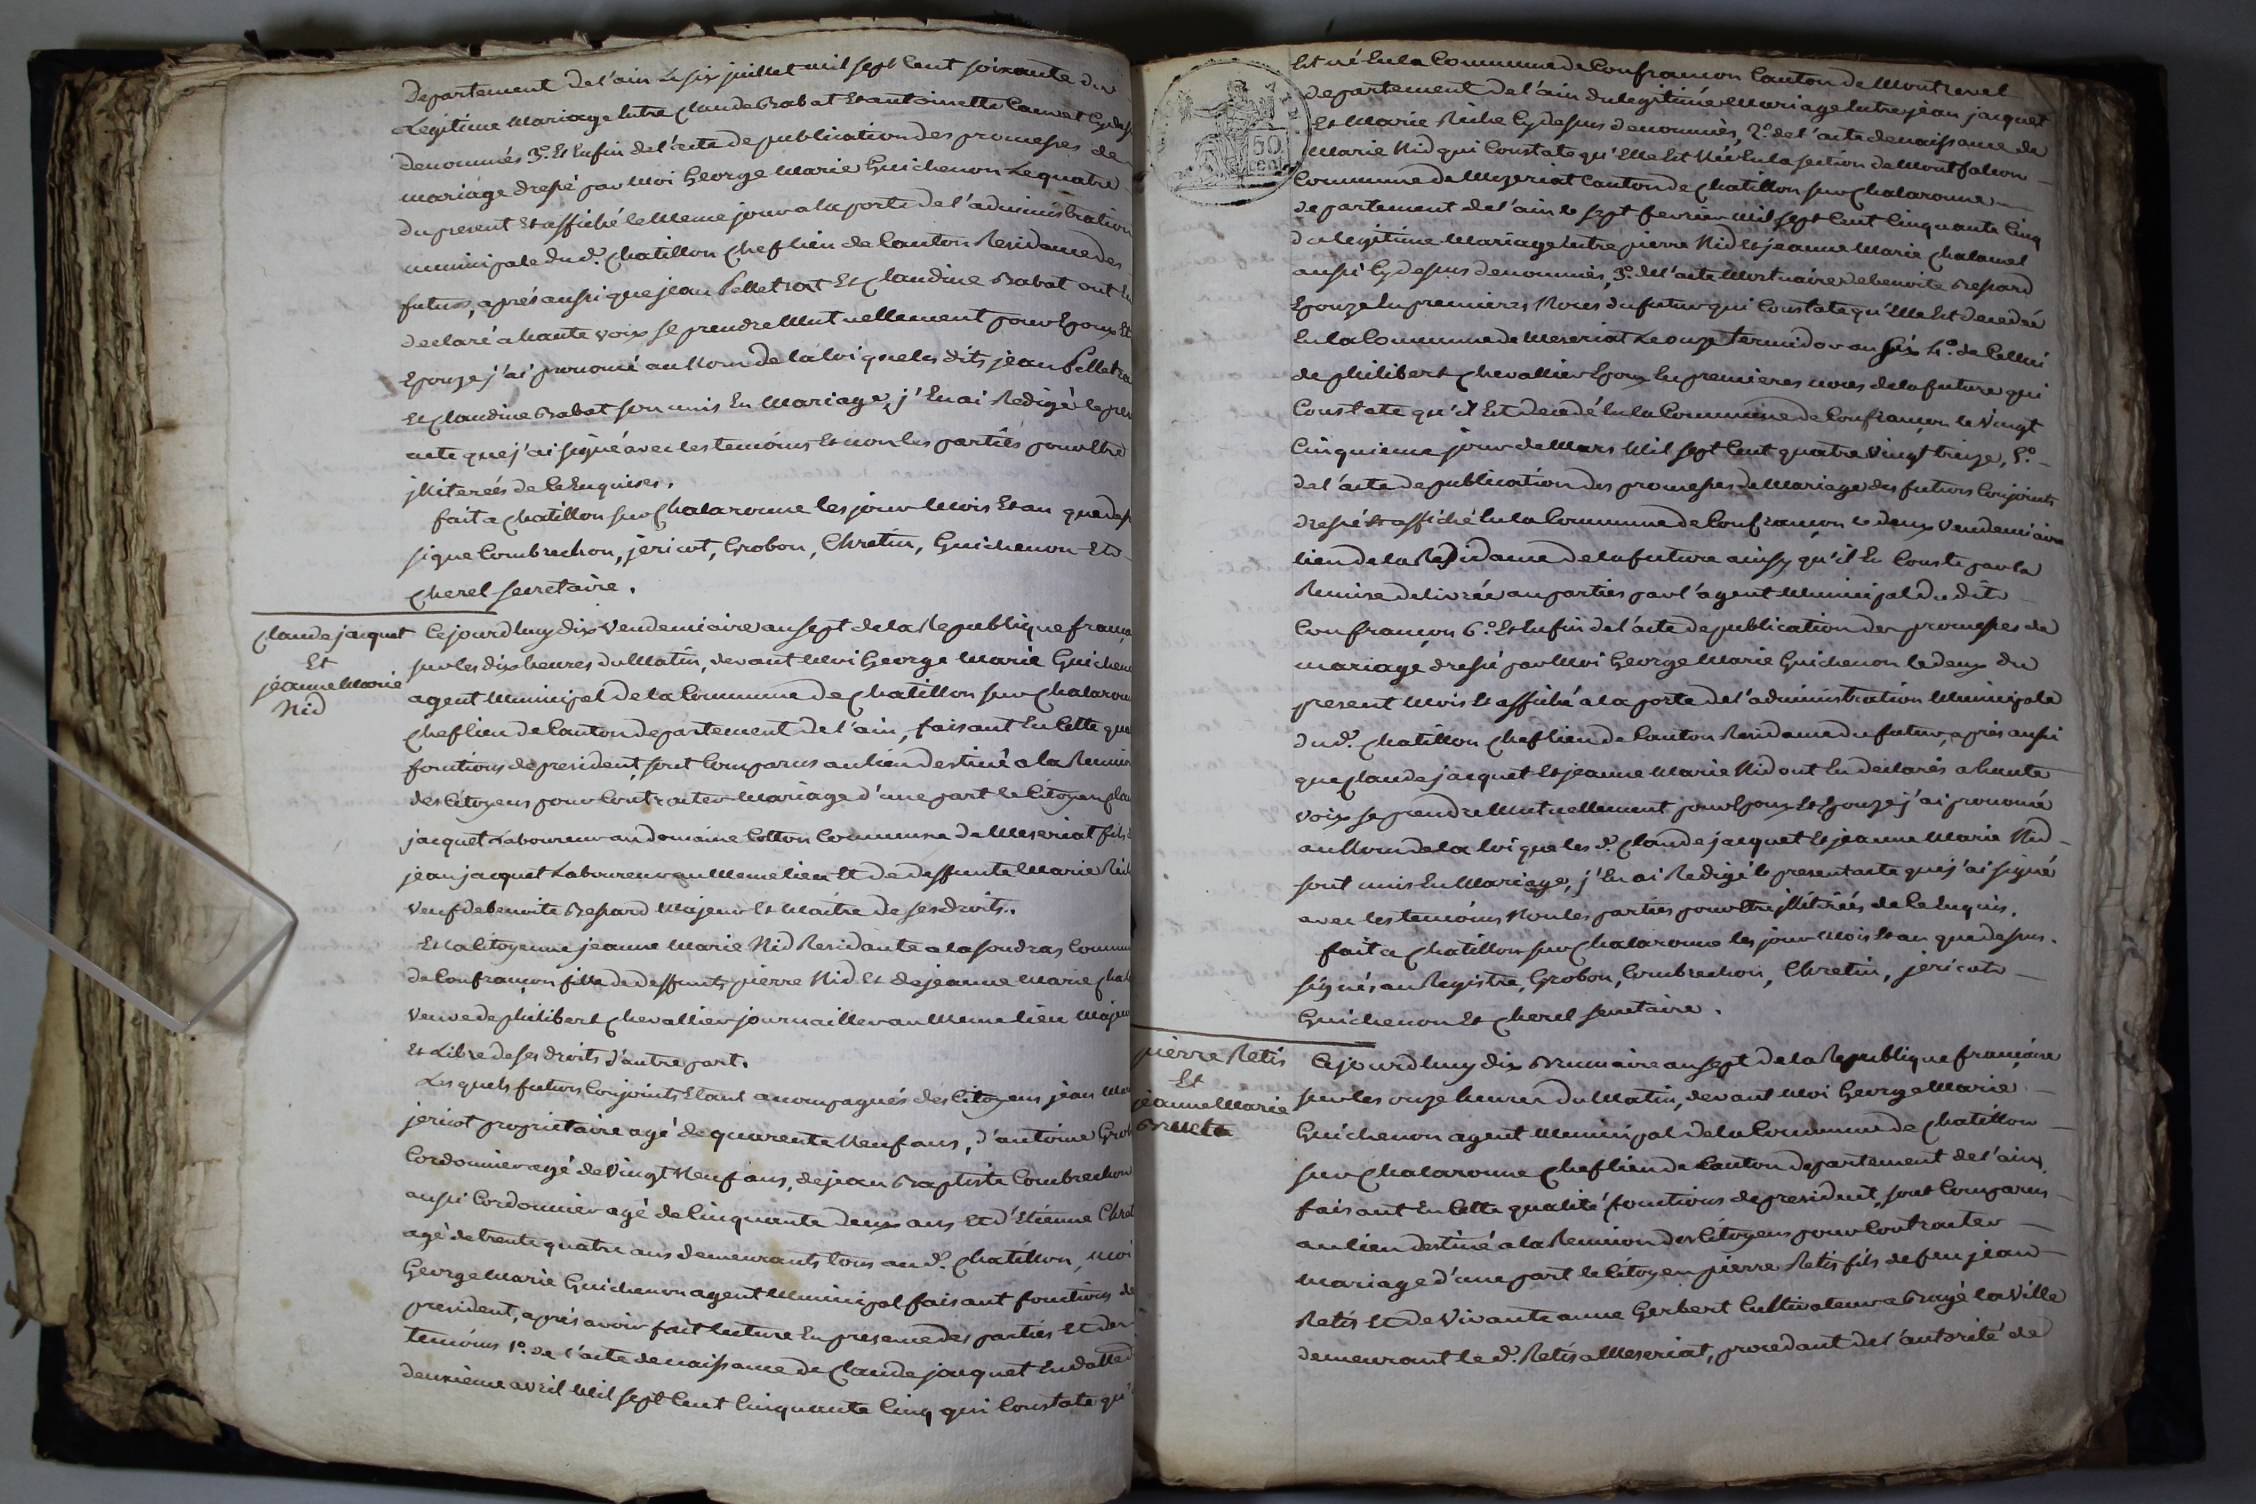 departement de l'ain le six juillet mil sept cent soixante du
Legitime Mariage entre Claude Rabat et antoinette Cauvet cy dess
denommés 3.° et enfin de l'acte de publication des promesses de
mariage dressé par moi George Marie Guichenon le quatre
du present et affiché le meme jour a la porte de l'administration
municipale du d. Chatillon Chef lieu de Canton Residence des
futurs, aprés aussi que jean Pelletrat et Claudine Rabat ont eu
declaré a haute voix se prendre Mutuellement pour Epoux et
Epouze j'ai prononcé au Nom de la loi que les dits jean Pelletra
et Claudine Rabat son unis en Mariage, j'en ai Redigé le pre
acte que j'ai signé avec les temoins et non les parties pour etre
jlliterés de ce Enquises.
fait a Chatillon sur Chalaronne les jour Mois et an que dess
signe Combrechon, jericot, Grobon, Chretin, Guichenon et
Cherel secretaire.
Claude jacquet
Et
jeanne Marie
Nid
Cejourdhuy dix Vendemiaire an sept de la Republique franç
sur les dix heures du Matin, devant Moi George Marie Guichen
agent Municipal de la Commune de Chatillon sur Chalaron
Chef lieu de Canton departement de l'ain, faisant en cette qua
fonctions de president, sont Comparus au lieu destiné a la Reunion
des Citoyens pour Contracter Mariage d'une part le Citoyen Cla
jacquet Laboureur au domaine Cotton Commune de Meseriat fils
jean jacquet Laboureur au Meme lieu et de deffunte Marie
Veuf de benoite Brepard Majeur et Maitre de ses droits.
Et la Citoyenne jeanne Marie Nid Residante a la foudras Commun
de Confrançon fille de deffunts pierre Nid et de jeanne Marie Chal
Veuve de philibert Chevallier journaillier au Meme lieu Majeur
et Libre de ses droits d'autre part.
Les quels futurs Conjoints Etant accompagnés des Citoyens jean Mar
jericot proprietaire agé de quarente Neuf ans, d'antoine Grob
Cordonnier agé de Vingt Neuf ans, de jean Baptiste Combrechon
aussi Cordonnier agé de Cinquante deux ans et d'Etienne Chret
agé de trente quatre ans demeurants tous au d. Chatillon, Moi
George Marie Guichenon agent Municipal faisant fonctions de
president, aprés avoir fait lecture en presence des parties et des
temoins 1.° de l'acte de naissance de Claude jacquet en datte d
deuxieme avril Mil sept Cent Cinquante Cinq qui Constate qu'
Est né en la Commune de Confrançon Canton de Montrevel
departement de l'ain du legitime Mariage entre jean jacquet
et Marie cy dessus denommés, 2.° de l'acte de naissance de
Marie Nid qui Constate qu'elle est Née en la section de Montfalcon
Commune de Mezeriat Canton de Chatillon sur Chalaronne
departement de l'ain le sept fevrier Mil sept Cent Cinquante Cinq
du legitime Mariage entre pierre Nid et jeanne Marie Chalamel
aussi cy dessus denommés, 3.° de l'acte Mortuaire de benoite Brepard
Epouze en premieres Noces du futur qui Constate qu'elle est decedée
en la Commune de Meseriat le onze termidor an six 4.° de Cellui
de philibert Chevallier Epoux en premieres noces de la future qui
Constate qu'il est decedé en la Commune de Confrançon le Vingt
Cinquieme jour de Mars Mil sept Cent quatre Vingt treize, 5.°
de l'acte de publication des promesses de Mariage des futurs Conjoints
dressé et affiché en la Commune de Confrançon le deux Vendemiaire
lieu de la Residance de la future ainsy qu'il en Conste par la
Remise delivrée au parties par l'agent Municipal du dit
Confrançon 6.° et enfin de l'acte de publication des promesses de
mariage dressé par Moi George Marie Guichenon le deux du
present Mois et affiché a la porte de l'administration Municipale
du d. Chatillon Chef lieu de Canton Residance du futur, aprés aussi
que Claude jacquet et jeanne Marie Nid ont eu declarés a haute
voix se prendre Mutuellement pour Epoux et Epouze j'ai prononcé
au Nom de la loi que les d. Claude jacquet et jeanne Marie Nid
sont unis en Mariage, j'en ai Redigé le present acte que j'ai signé
avec les temoins Non les parties pour etre jllitérés de ce Enquis.
fait a Chatillon sur Chalaronne les jour Mois et an que dessus.
signés au Registre, Grobon, Combrechon, Chretin, jericot
Guichenon et Cherel secretaire.
pierre Retis
Et
jeanne Marie
Cejourdhuy dix Brumaire an sept de la Republique française
sur les onze heures du Matin, devant Moi George Marie
Guichenon agent Municipal de la Commune de Chatillon
sur Chalaronne Chef lieu de Canton departement de l'ain,
faisant en cette qualité fonctions de president, sont Comparus
au lieu destiné a la Reunion des Citoyens pour Contracter
Mariage d'une part le Citoyen pierre Retis fils de feu jean
Retis et de Vivante anne Gerbert Cultivateur a Bragé la Ville
demeurant le d. Retis a Meseriat, procedant de l'autorité de